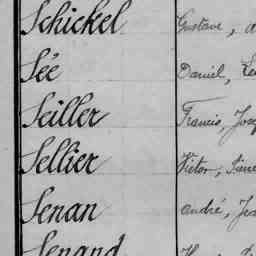 Schickel Gustave,
Sée Daniel,
Seiller Francis,
Sellier Victor,
Senan André,
Senand